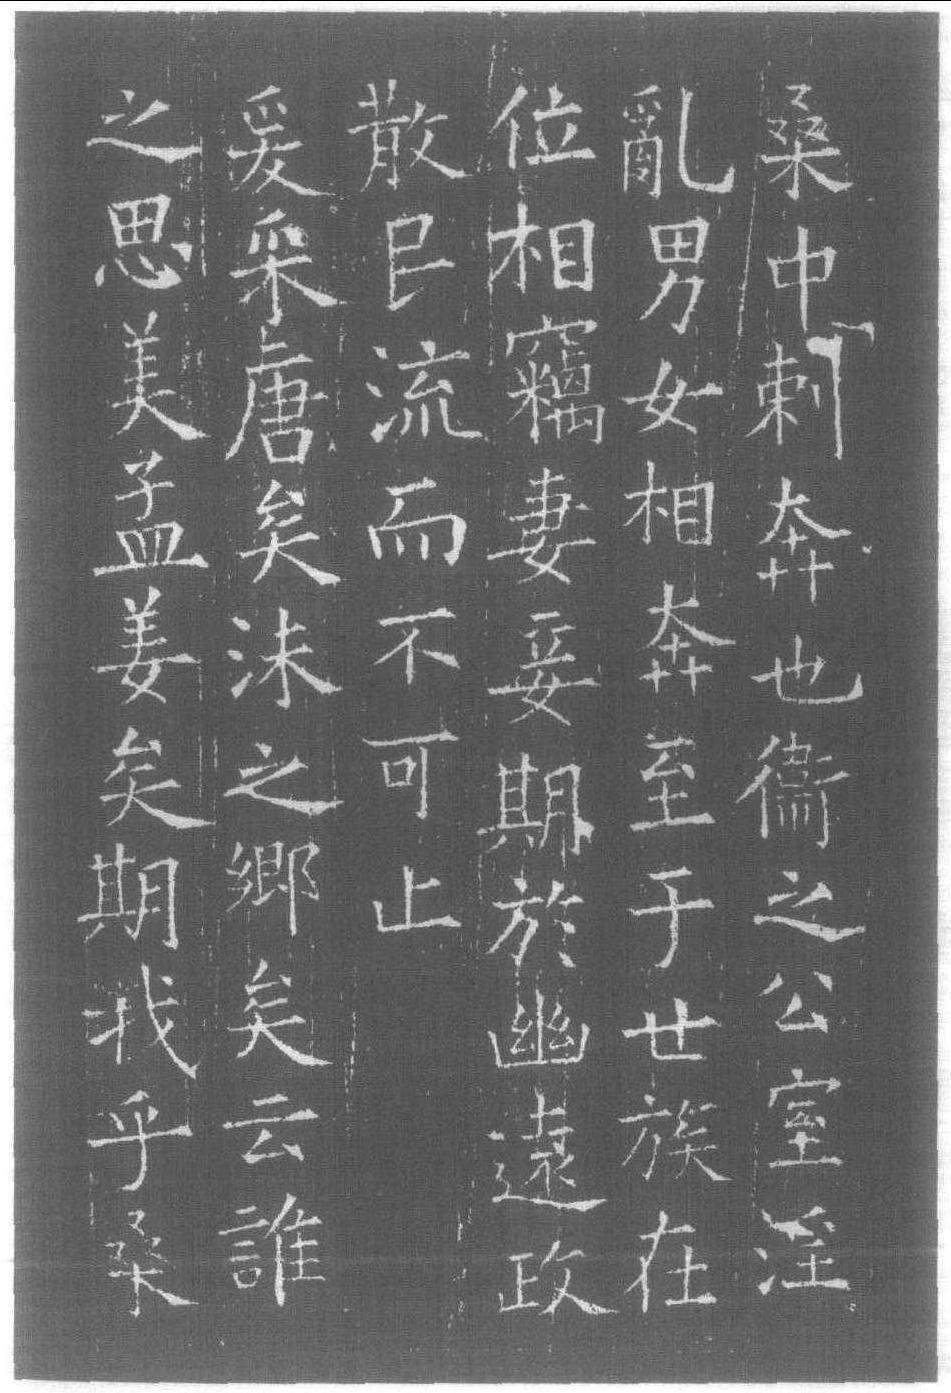 桑中刺奔也衞之公室淫
亂男女相奔至于世族在
位相竊妻妾期於幽遠政
散民流而不可止
爰采唐矣沬之鄉矣云誰
之思美孟姜矣期我乎桑